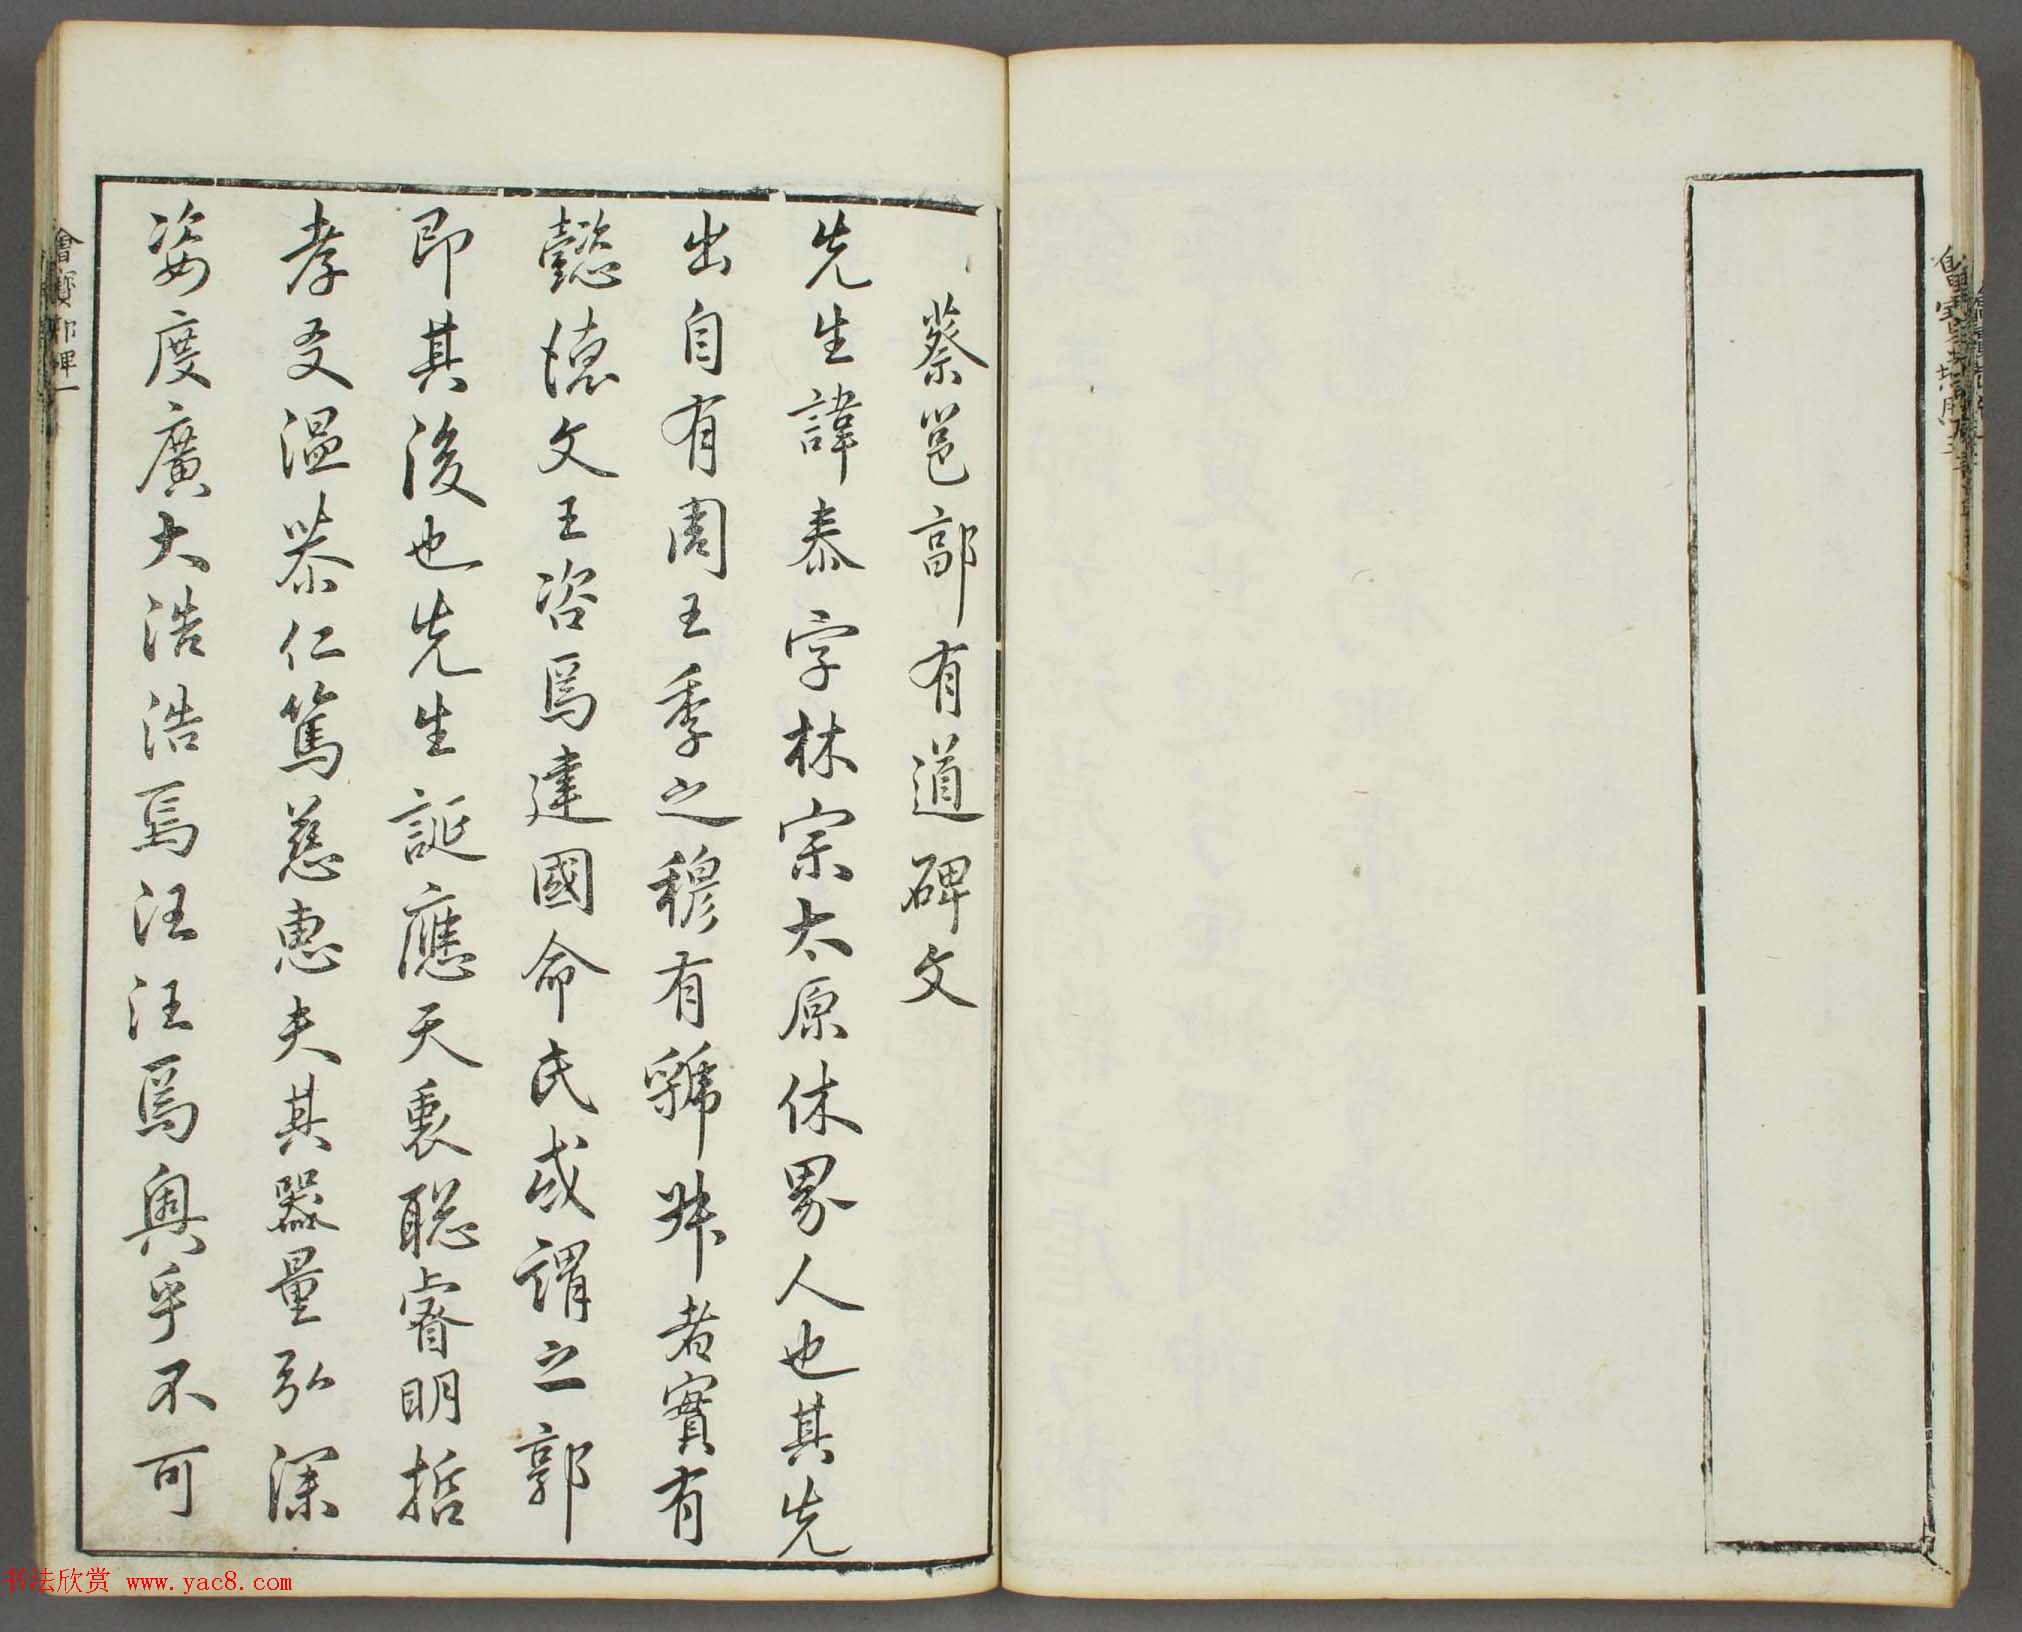 蔡邕郭有道碑文
先生諱泰字林宗太原休界人也其先
出自有周王季之穆有虢叔者實有
懿德文王咨焉建國命氏或謂之郭
即其後也先生誕應天衷聡睿明哲
孝友温恭仁篤慈惠夫其器量弘深
姿度廣大浩浩焉汪汪焉奥乎不可
會寶郭碑一
书法欣赏 www.yac8.com